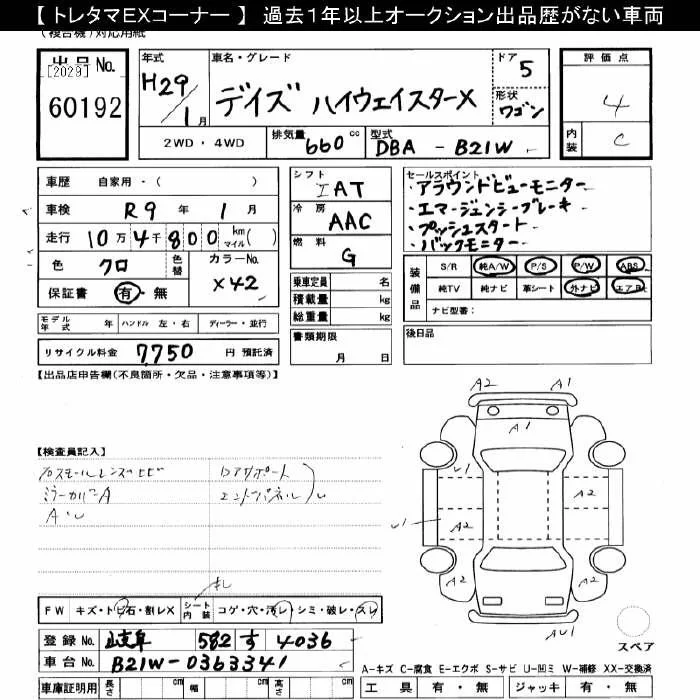 【 トレタマEXコーナー 】 過去1年以上オークション出品歴がない車両
(複合機)対応用紙
出品No.
[2029]
60192
年式
H29/1月
車名・グレード
デイズ ハイウェイスターX
ドア 5
形状
ワゴン
評価点
4
内装 C
2WD・4WD
排気量 660 cc
型式 DBA - B21W
車歴 自家用・( )
車検 R9年 1月
走行 10万4千800 km マイル( )
色 クロ
色替
カラーNo.
X42
保証書 有・無
シフト
IAT
冷房
AAC
燃料
G
乗車定員 名
積載量 kg
総重量 kg
セールスポイント
・アラウンドビューモニター
・エマージェンシーブレーキ
・プッシュスタート
・バックモニター
装備品
S/R 純A/W P/S P/W ABS
純TV 純ナビ 革シート 外ナビ エアB
ナビ型番:
モデル年式 年 ハンドル 左・右 ディーラー・並行
リサイクル料金 7,750 円 預託済
書類期限
月 日
後日品
【出品店申告欄(不良箇所・欠品・注意事項等)】
【検査員記入】
ミラーカバーA
A・U
A2 A1
A1
U1
A2
U1
A2
A2 A2
AU1
スペア
FW キズ・トビ石・割レX
シート内装 コゲ・穴・汚レ・シミ・破レ・スレ
登録No. 岐阜 582 す 4036
車台No. B21W-0363341
車庫証明用 長さ cm 幅 cm 高さ cm
A-キズ C-腐食 E-エクボ S-サビ U-凹ミ W-補修 XX-交換済
工具 有・無 ジャッキ 有・無